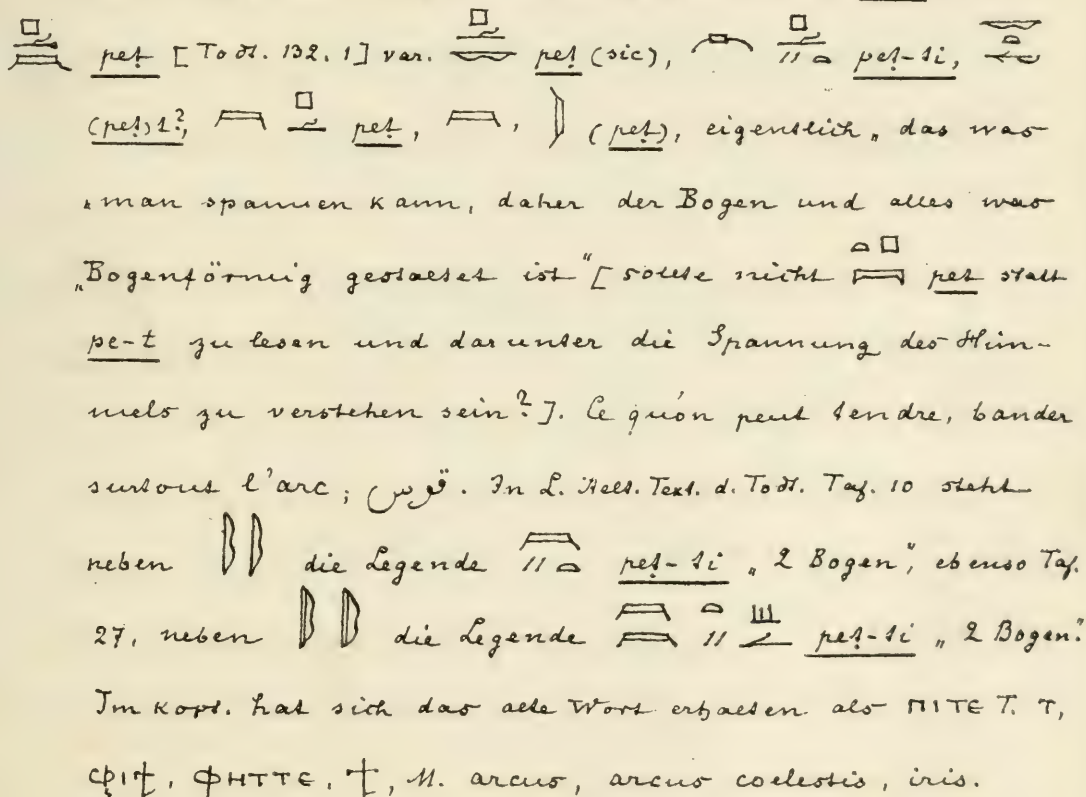 peṭ [Todt. 132, 1] var. peṭ (sic), peṭ-ti,
(peṭ)t?, peṭ, (peṭ), eigentlich „das was
„man spannen kann, daher der Bogen und alles was
„Bogenförmig gestaltet ist“ [sollte nicht pet statt
pe-t zu lesen und darunter die Spannung des Him-
mels zu verstehen sein?]. Ce qu'on peut tendre, bander
surtout l'arc; قوس. In L. Aelt. Text. d. Todt. Taf. 10 steht
neben die Legende peṭ-ti „2 Bogen“, ebenso Taf.
27, neben die Legende peṭ-ti „2 Bogen“.
Im Kopt. hat sich das alte Wort erhalten als ⲠⲒⲦⲈ T. T,
ⲪⲒϮ, ⲪⲎⲦⲦⲈ, Ϯ, M. arcus, arcus coelestis, iris.